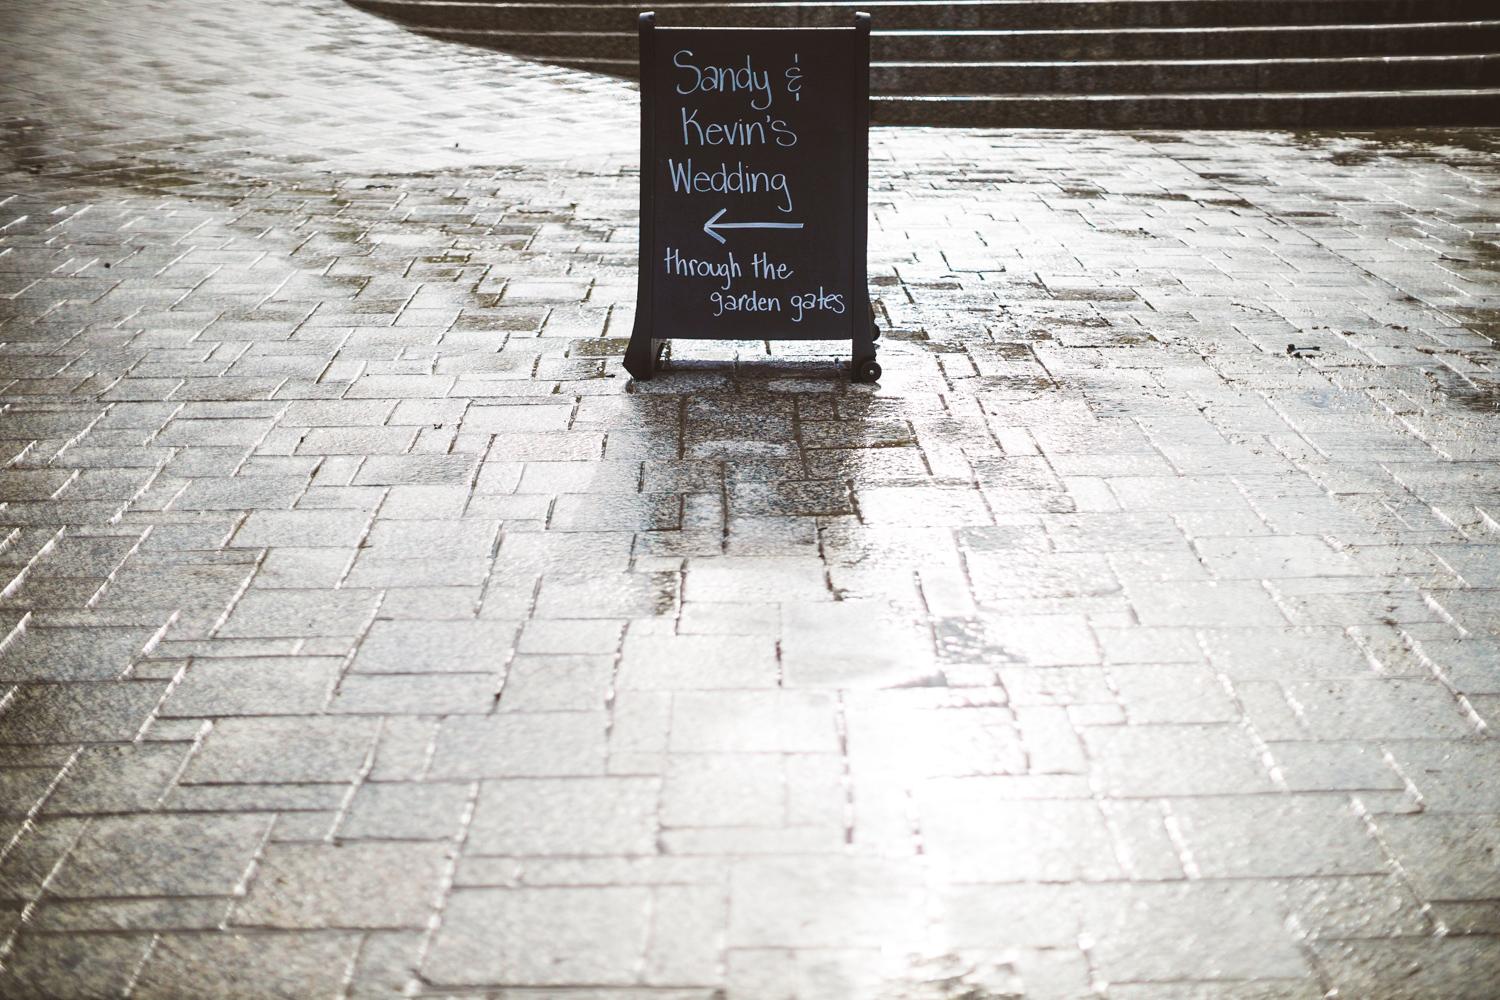 Sandy &
Kevin's
Wedding
←
through the
garden gates